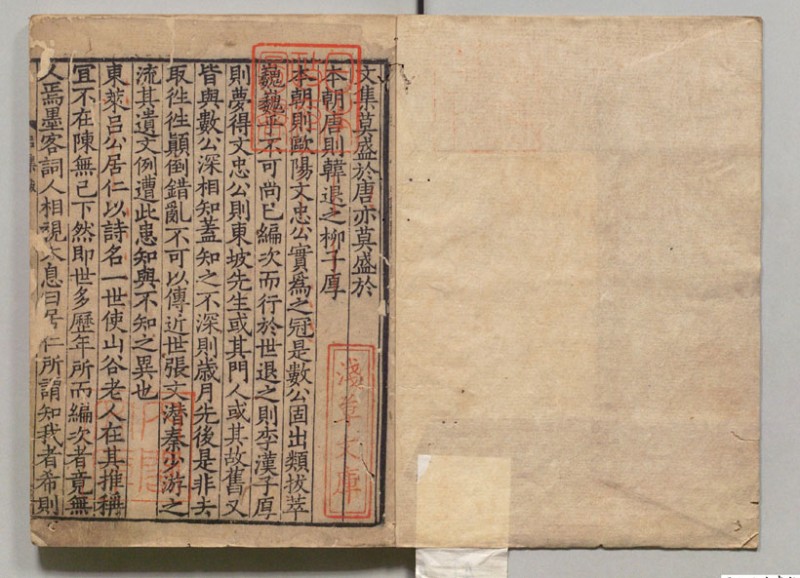 文集莫盛於唐亦莫盛於
本朝唐則韓退之柳子厚
本朝則歐陽文忠公實爲之冠是數公固出類拔萃
巍巍乎不可尚已編次而行於世退之則李漢子厚
則夢得文忠公則東坡先生或其門人或其故舊又
皆與數公深相知蓋知之不深則歲月先後是非去
取徃徃顚倒錯亂不可以傳近世張文潛秦少游之
流其遺文例遭此患知與不知之異也
東萊吕公居仁以詩名一世使山谷老人在其推稱
宜不在陳無已下然即世多歷年所而編次者竟無
人焉墨客詞人相視太息曰居仁所謂知我者希則
淺草文庫